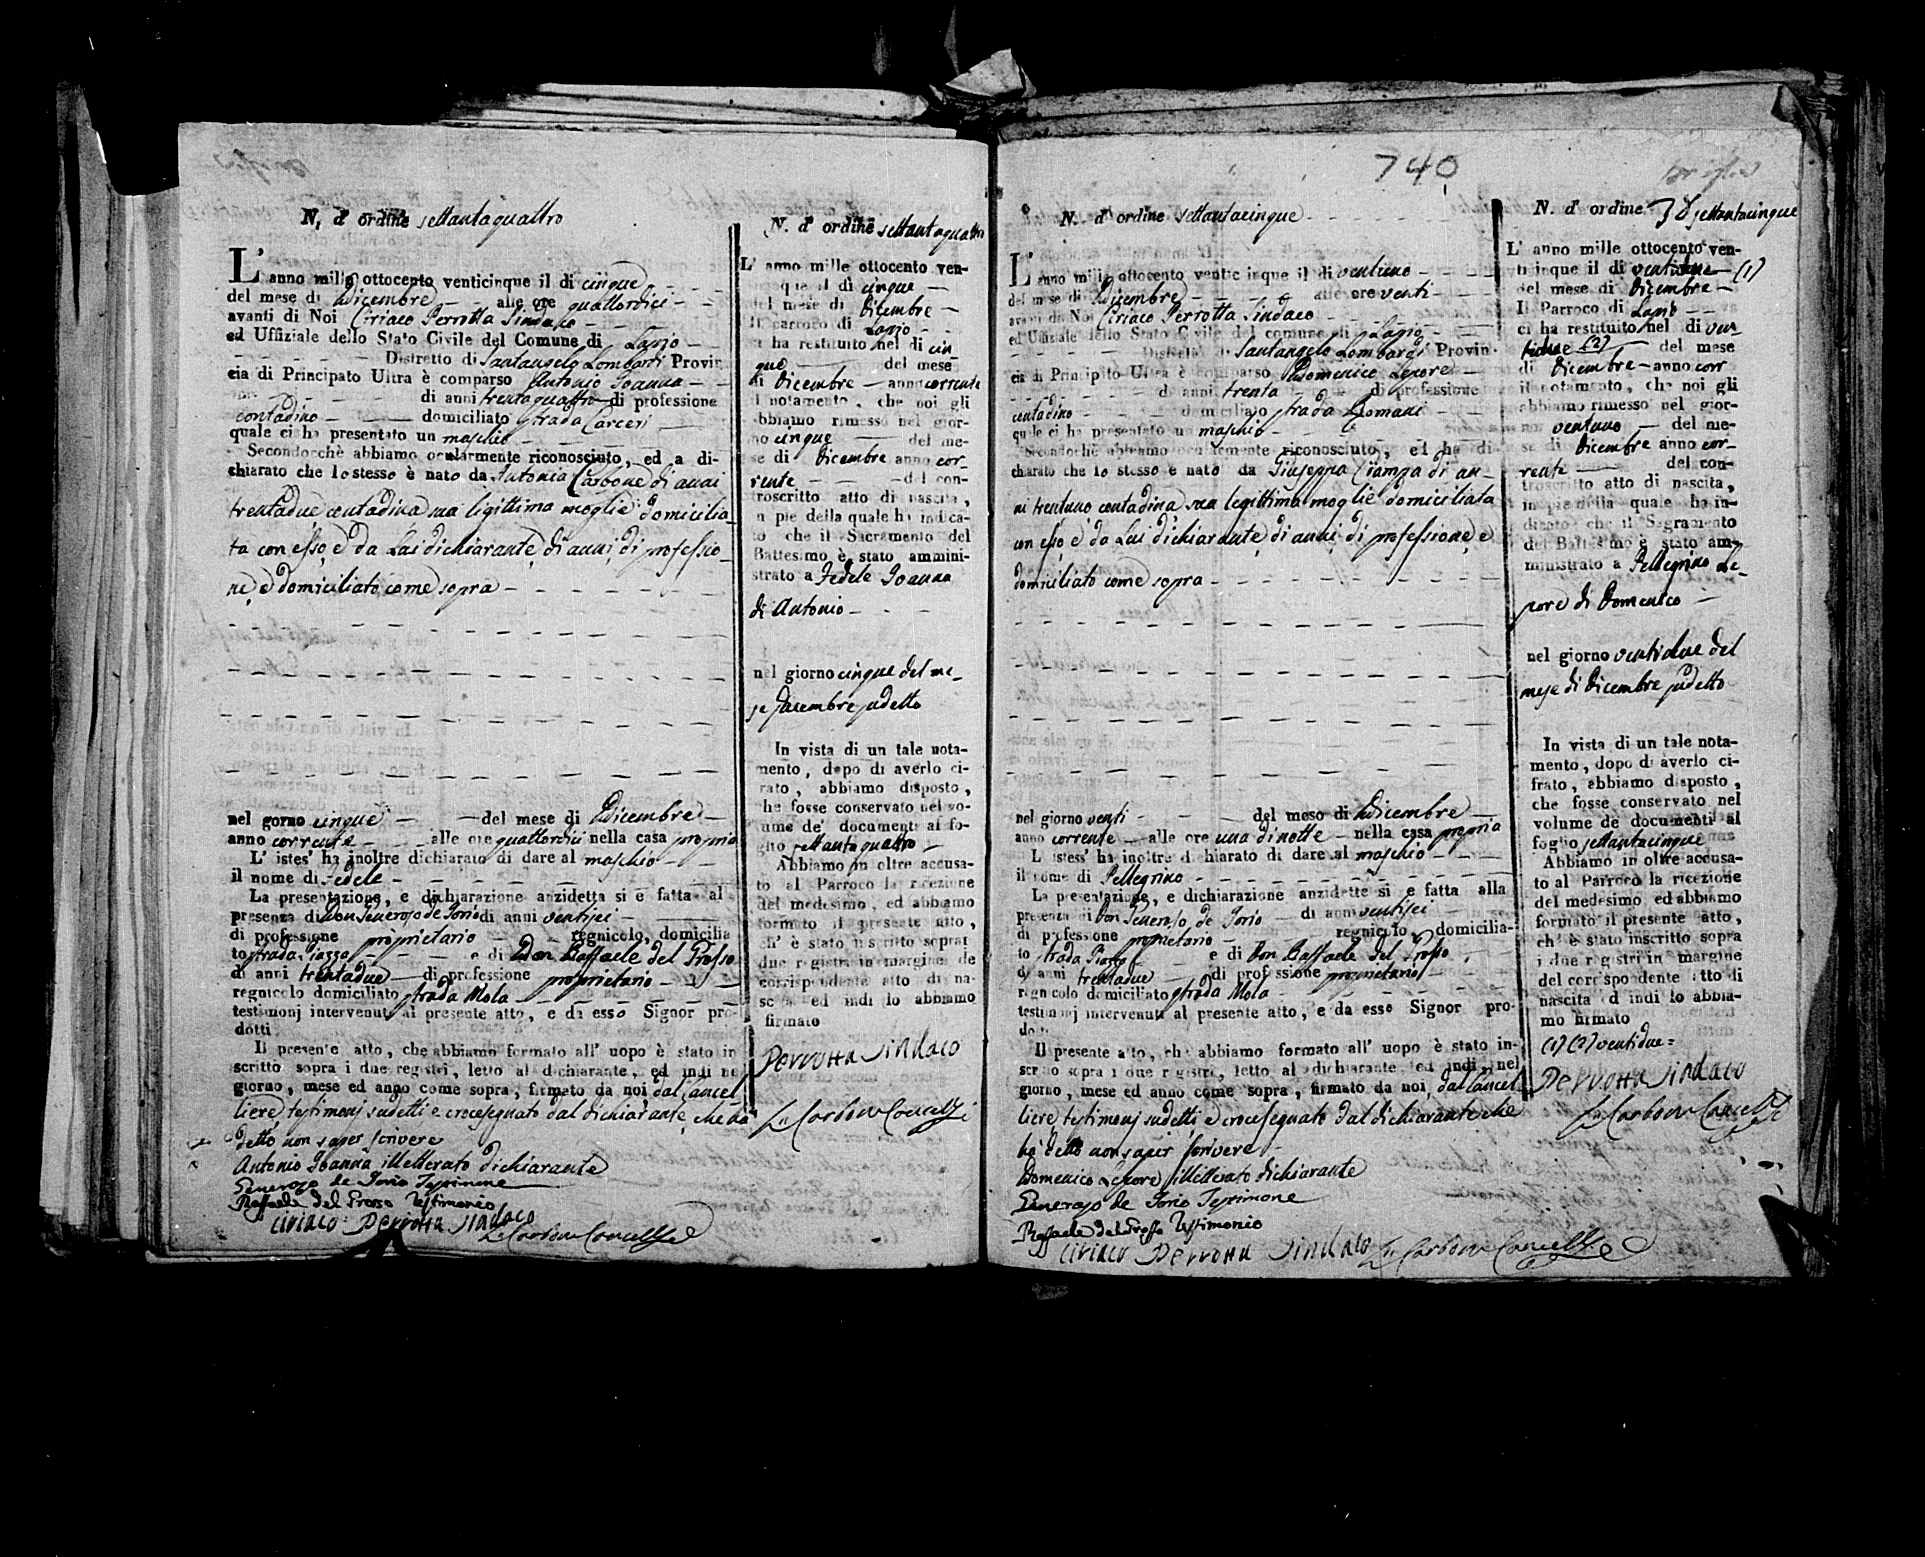 N. d' ordine settantaquattro
L' anno mille ottocento venticinque il di cinque
del mese di Xdicembre alle ore quattordici
avanti di Noi Ciriaco Perrotta Sindaco
ed Uffiziale dello Stato Civile del Comune di Lapio
Distretto di Santangelo Lombardi Provin
cia di Principato Ultra è comparso Antonio Ioanna
di anni trentaquattro di professione
contadino domiciliato strada Carceri
quale ci ha presentato un maschio
Secondocchè abbiamo ocularmente riconosciuto, ed a di-
chiarato che lo stesso è nato da Antonia Carbone di anni
trentadue contadina sua ligittima moglie domicilia-
ta con esso e da Lui dichiarante di anni di professio-
ne e domiciliato come sopra
nel gorno cinque del mese di Xdicembre
anno corrente alle ore quattordici nella casa propria
L' istes' ha inoltre dichiarato di dare al maschio
il nome di Fedele
La presentazione, e dichiarazione anzidetta si è fatta al
presenza di Don Generoso de Iorio di anni ventisei
di professione proprietario regnicolo, domicilia
to strada Piazza e di Don Raffaele del Grosso
d' anni trentadue di professione proprietario
regnicolo domiciliato strada Mola
testimonj intervenuti al presente atto, e da esso Signor pro-
dotti
Il presente atto, che abbiamo formato all' uopo è stato in
scritto sopra i due registri, letto al dichiarante, ed indi ne
giorno, mese ed anno come sopra, firmato da noi dal Cancel-
liere, testimonj sudetti e crocesegnato dal dichiarante che ha
detto non saper scrivere
Antonio Ioanna illetterato dichiarante
Generoso de Iorio Testimone
Raffaele del Grosso Testimonio
Ciriaco Perrotta Sindaco
Carbone Cancelliere
N. d' ordine settantaquattro
L' anno mille ottocento ven-
que il di cinque
del mese di Dicembre
Il parroco di Lapio
ci ha restituito nel di cin
que del mese
di Dicembre anno corrente
il notamento, che noi gli
abbiamo rimesso nel gior-
no cinque del me-
se di Dicembre anno cor-
rente del con-
troscritto atto di nascita,
in pie della quale ha indica-
to che il Sacramento del
Battesimo è stato ammini-
strato a Fedele Ioanna
di Antonio
nel giorno cinque del me-
se Dicembre sudetto
In vista di un tale nota-
mento, dopo di averlo ci-
frato, abbiamo disposto,
che fosse conservato nel vo-
lume de' documenti al fo-
glio settantaquattro
Abbiamo in oltre accusa-
to al Parroco la ricezione
del medesimo, ed abbiamo
formato il presente atto,
ch' è stato inscritto sopra
due registri in margine de
corrispondente atto di na-
scita ed indi lo abbiamo
firmato
Perrotta Sindaco
Carbone Cancelliere
740
N. d' ordine settantacinque
L' anno mille ottocento venticinque il di ventuno
del mese di Xdicembre alle ore venti
avanti di Noi Ciriaco Perrotta Sindaco
ed Uffiziale dello Stato Civile del comune di Lapio
Distretto di Santangelo Lombardi Provin-
cia di Principato Ultra è comparso Domenico Lepore
di anni trenta di professione
contadino domiciliato strada Romani
quale ci ha presentato un maschio
Secondochè abbiamo ocularmente riconosciuto, ed ha di
chiarato che lo stesso è nato da Giuseppa Ciampa di an-
ni trentuno contadina sua legittima moglie domiciliata
con esso e da Lui dichiarante di anni di professione e
domiciliato come sopra
nel giorno venti del mese di Xdicembre
anno corrente alle ore una di notte nella casa propria
L' istess' ha inoltre dichiarato di dare al maschio
il nome di Pellegrino
La presentazione, e dichiarazione anzidette si è fatta alla
presenza di Don Generoso de Iorio di anni ventisei
di professione proprietario regnicolo domicilia-
to strada Piazza e di Don Raffaele del Grosso
di anni trentadue di professione proprietario
regnicolo domiciliato strada Mola
testimonj intervenuti al presente atto, e da esso Signor pro-
dotti
Il presente atto, che abbiamo formato all' uopo è stato in-
scritto sopra i due registri, letto al dichiarante ed indi nel
giorno, mese ed anno come sopra, firmato da noi, dal Cancel-
liere testimonj sudetti, e crocesegnato dal dichiarante che
ha detto non saper scrivere
Domenico Lepore illetterato dichiarante
Generoso de Iorio Testimone
Raffaele del Grosso Testimonio
Ciriaco Perrotta Sindaco Carbone Cancelliere
N. d' ordine settantacinque
L' anno mille ottocento ven-
ticinque il di ventidue (1)
del mese di Dicembre
Il Parroco di Lapio
ci ha restituito nel di ven
tidue (2) del mese
di Dicembre anno corr
il notamento, che noi gli
abbiamo rimesso nel gior-
no ventuno del me-
se di Dicembre anno cor-
rente del con-
troscritto atto di nascita,
in pie della quale ha in-
dicato che il Sagramento
del Battesimo è stato am-
ministrato a Pellegrino Le-
pore di Domenico
nel giorno ventidue del
mese di Dicembre sudetto
In vista di un tale nota-
mento, dopo di averlo ci-
frato, abbiamo disposto,
che fosse conservato nel
volume de documenti al
foglio settantacinque
Abbiamo in oltre accusa-
to al Parroco la ricezione
del medesimo ed abbiamo
formato il presente atto,
ch' è stato inscritto sopra
i due registri in margine
del corrispondente atto di
nascita d indi lo abbia-
mo firmato
(1) (2) ventidue =
Perrotta Sindaco
Carbone Cancelliere